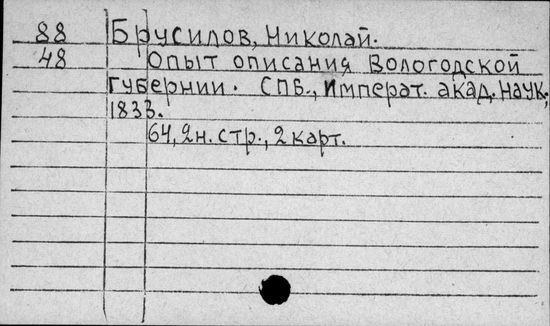 88 Брусилов, Николай.
48 Опыт описания Вологодской
губернии. СПб., Императ. акад. наук,
1833.
64, 2н. стр., 2 карт.